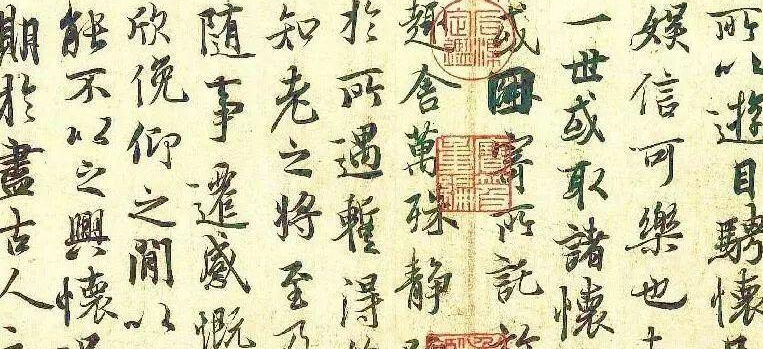 所以遊目騁懷
娛信可樂也
一世或取諸懷
或因寄所託
趣舍萬殊靜
於所遇暫得
知老之將至及
隨事遷感慨
欣俛仰之閒以
能不以之興懷
期於盡古人
石渠定鑑
寶笈重編